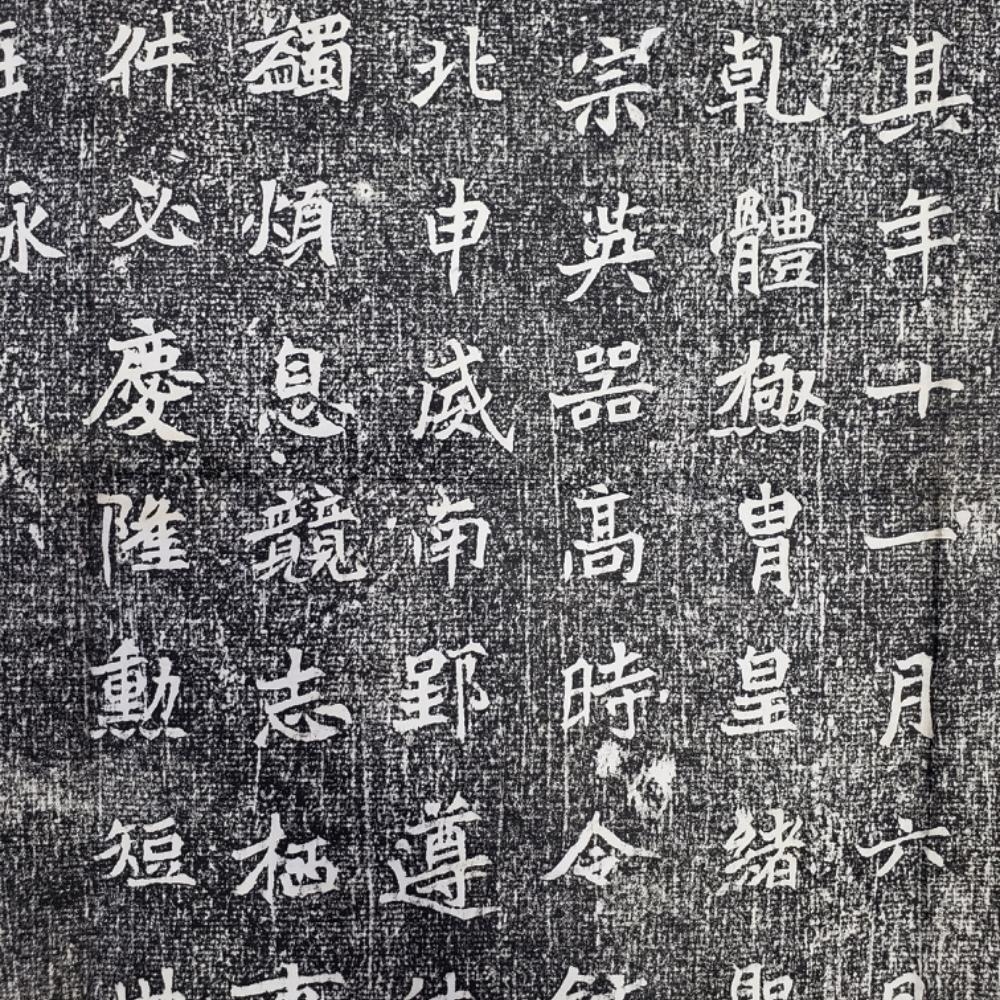 其年十一月六
乾體極胄皇緒
宗英器高時令
北申威南郢遵
蠲煩息競志栖
件必慶隆勳短
詠